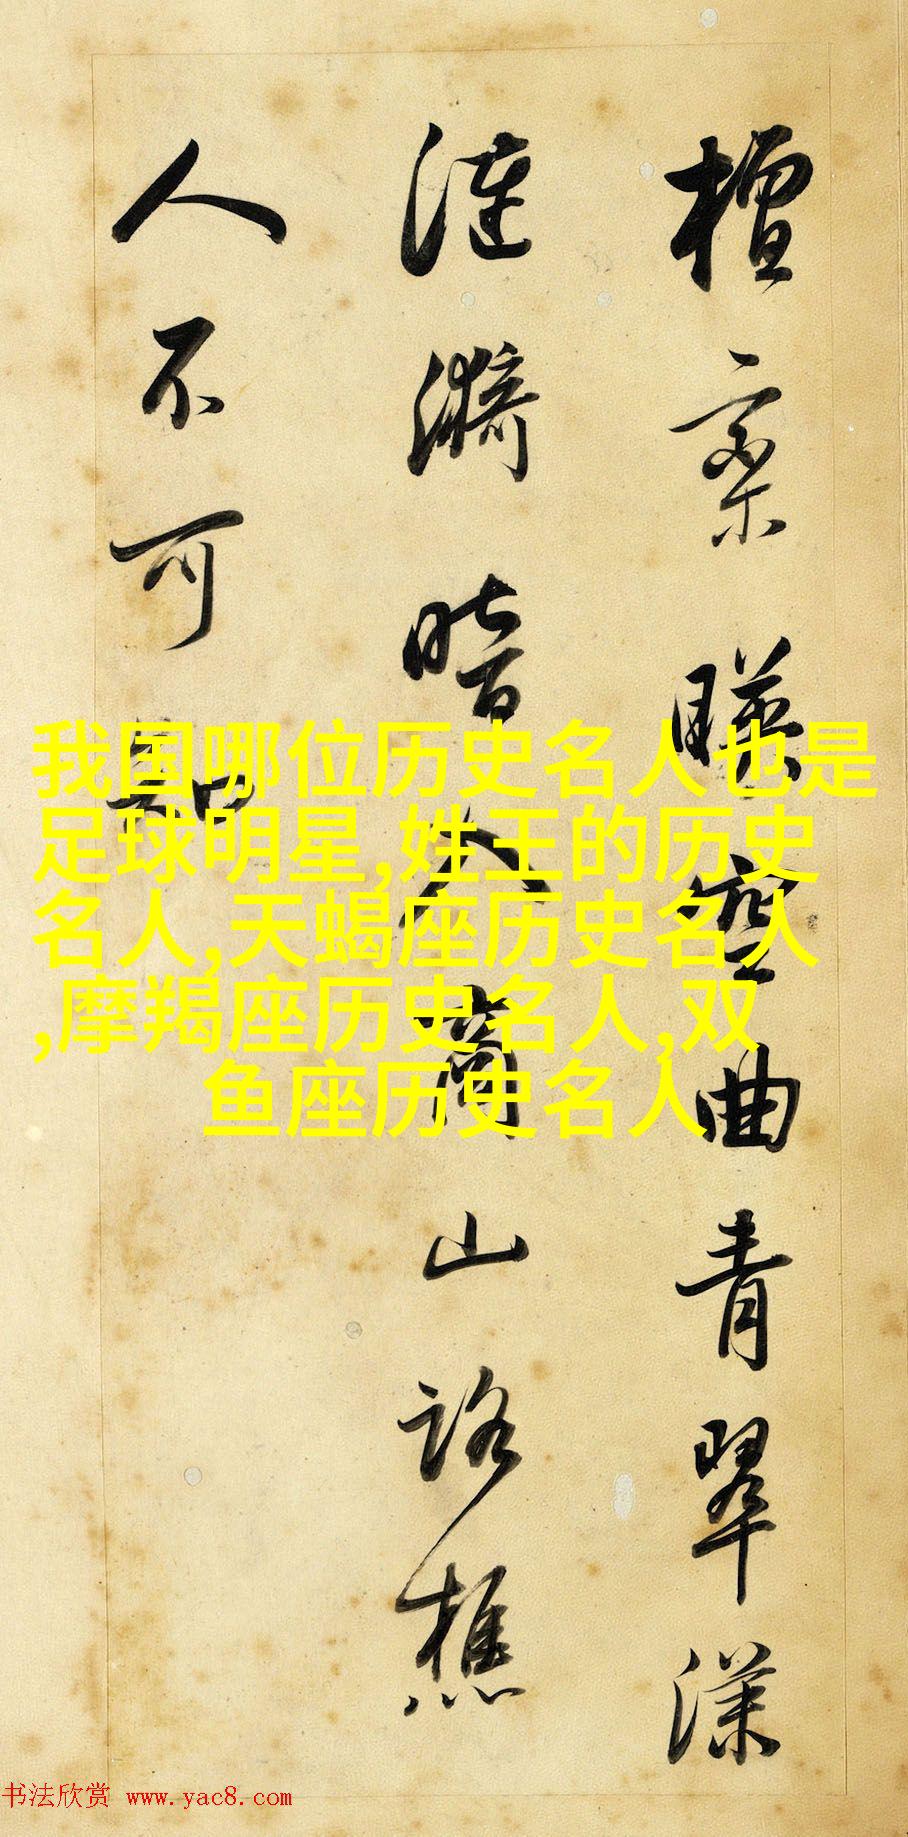 檀栾暎空曲青翠漾
漣漪暗入商山路樵
人不可知
我国哪位历史名人也是
足球明星,姓王的历史
名人,天蝎座历史名人
,摩羯座历史名人,双
鱼座历史名人
书法欣赏 www.yac8.com